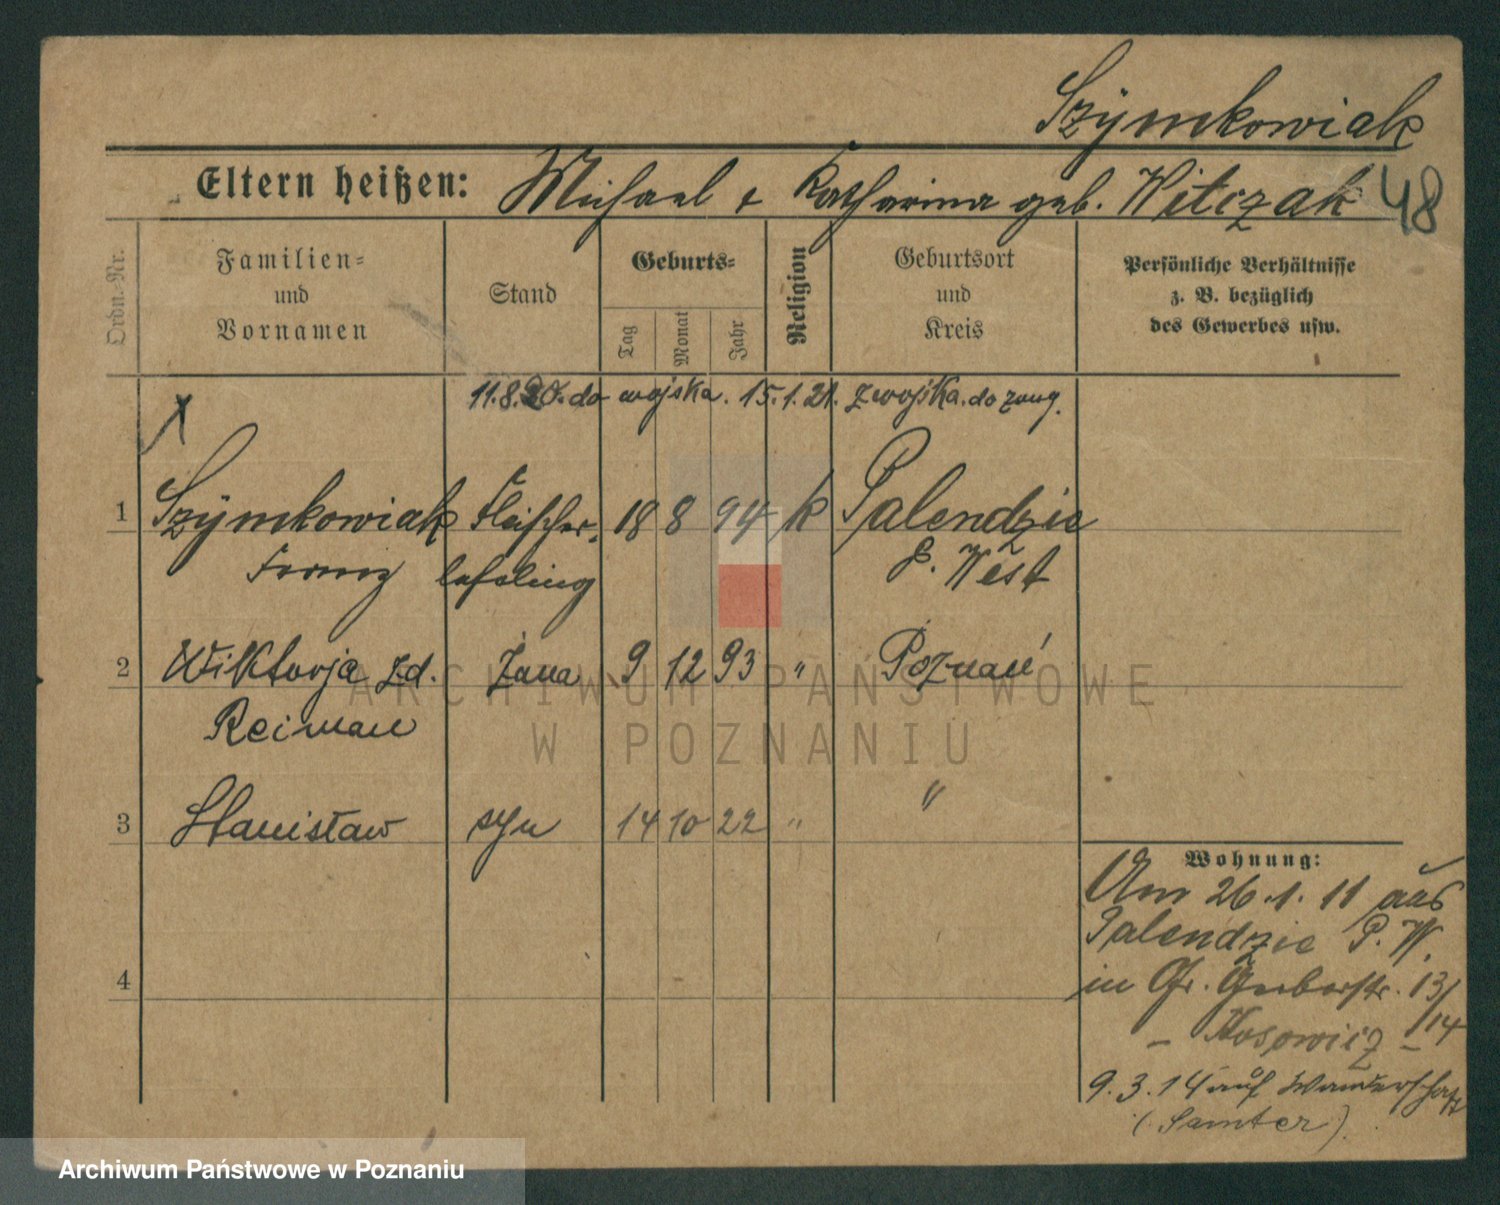 Szymkowiak
Eltern heißen: Michael & Katharina geb. Witczak 48
Ordn.-Nr.
Familien-
und
Vornamen
Stand
Geburts-
Tag
Monat
Jahr
Religion
Geburtsort
und
Kreis
Persönliche Verhältnisse
z. B. bezüglich
des Gewerbes usw.
11.8.20. do wojska. 15.1.21. z wojska. do
1 Szymkowiak Fleischer- 18 8 94 k Palendzie
Franz lehrling P. West
2 Wiktorja zd. Żona 9 12 93 " Poznań
Reiman
3 Stanisław syn 14 10 22 " "
4
Wohnung:
Am 26.1.11 aus
Palendzie P. W.
in Gr. Gerberstr. 13/
14
– Kosowicz –
9.3.14 auf Wanderschaft
(Samter).
ARCHIWUM PAŃSTWOWE
W POZNANIU
Archiwum Państwowe w Poznaniu